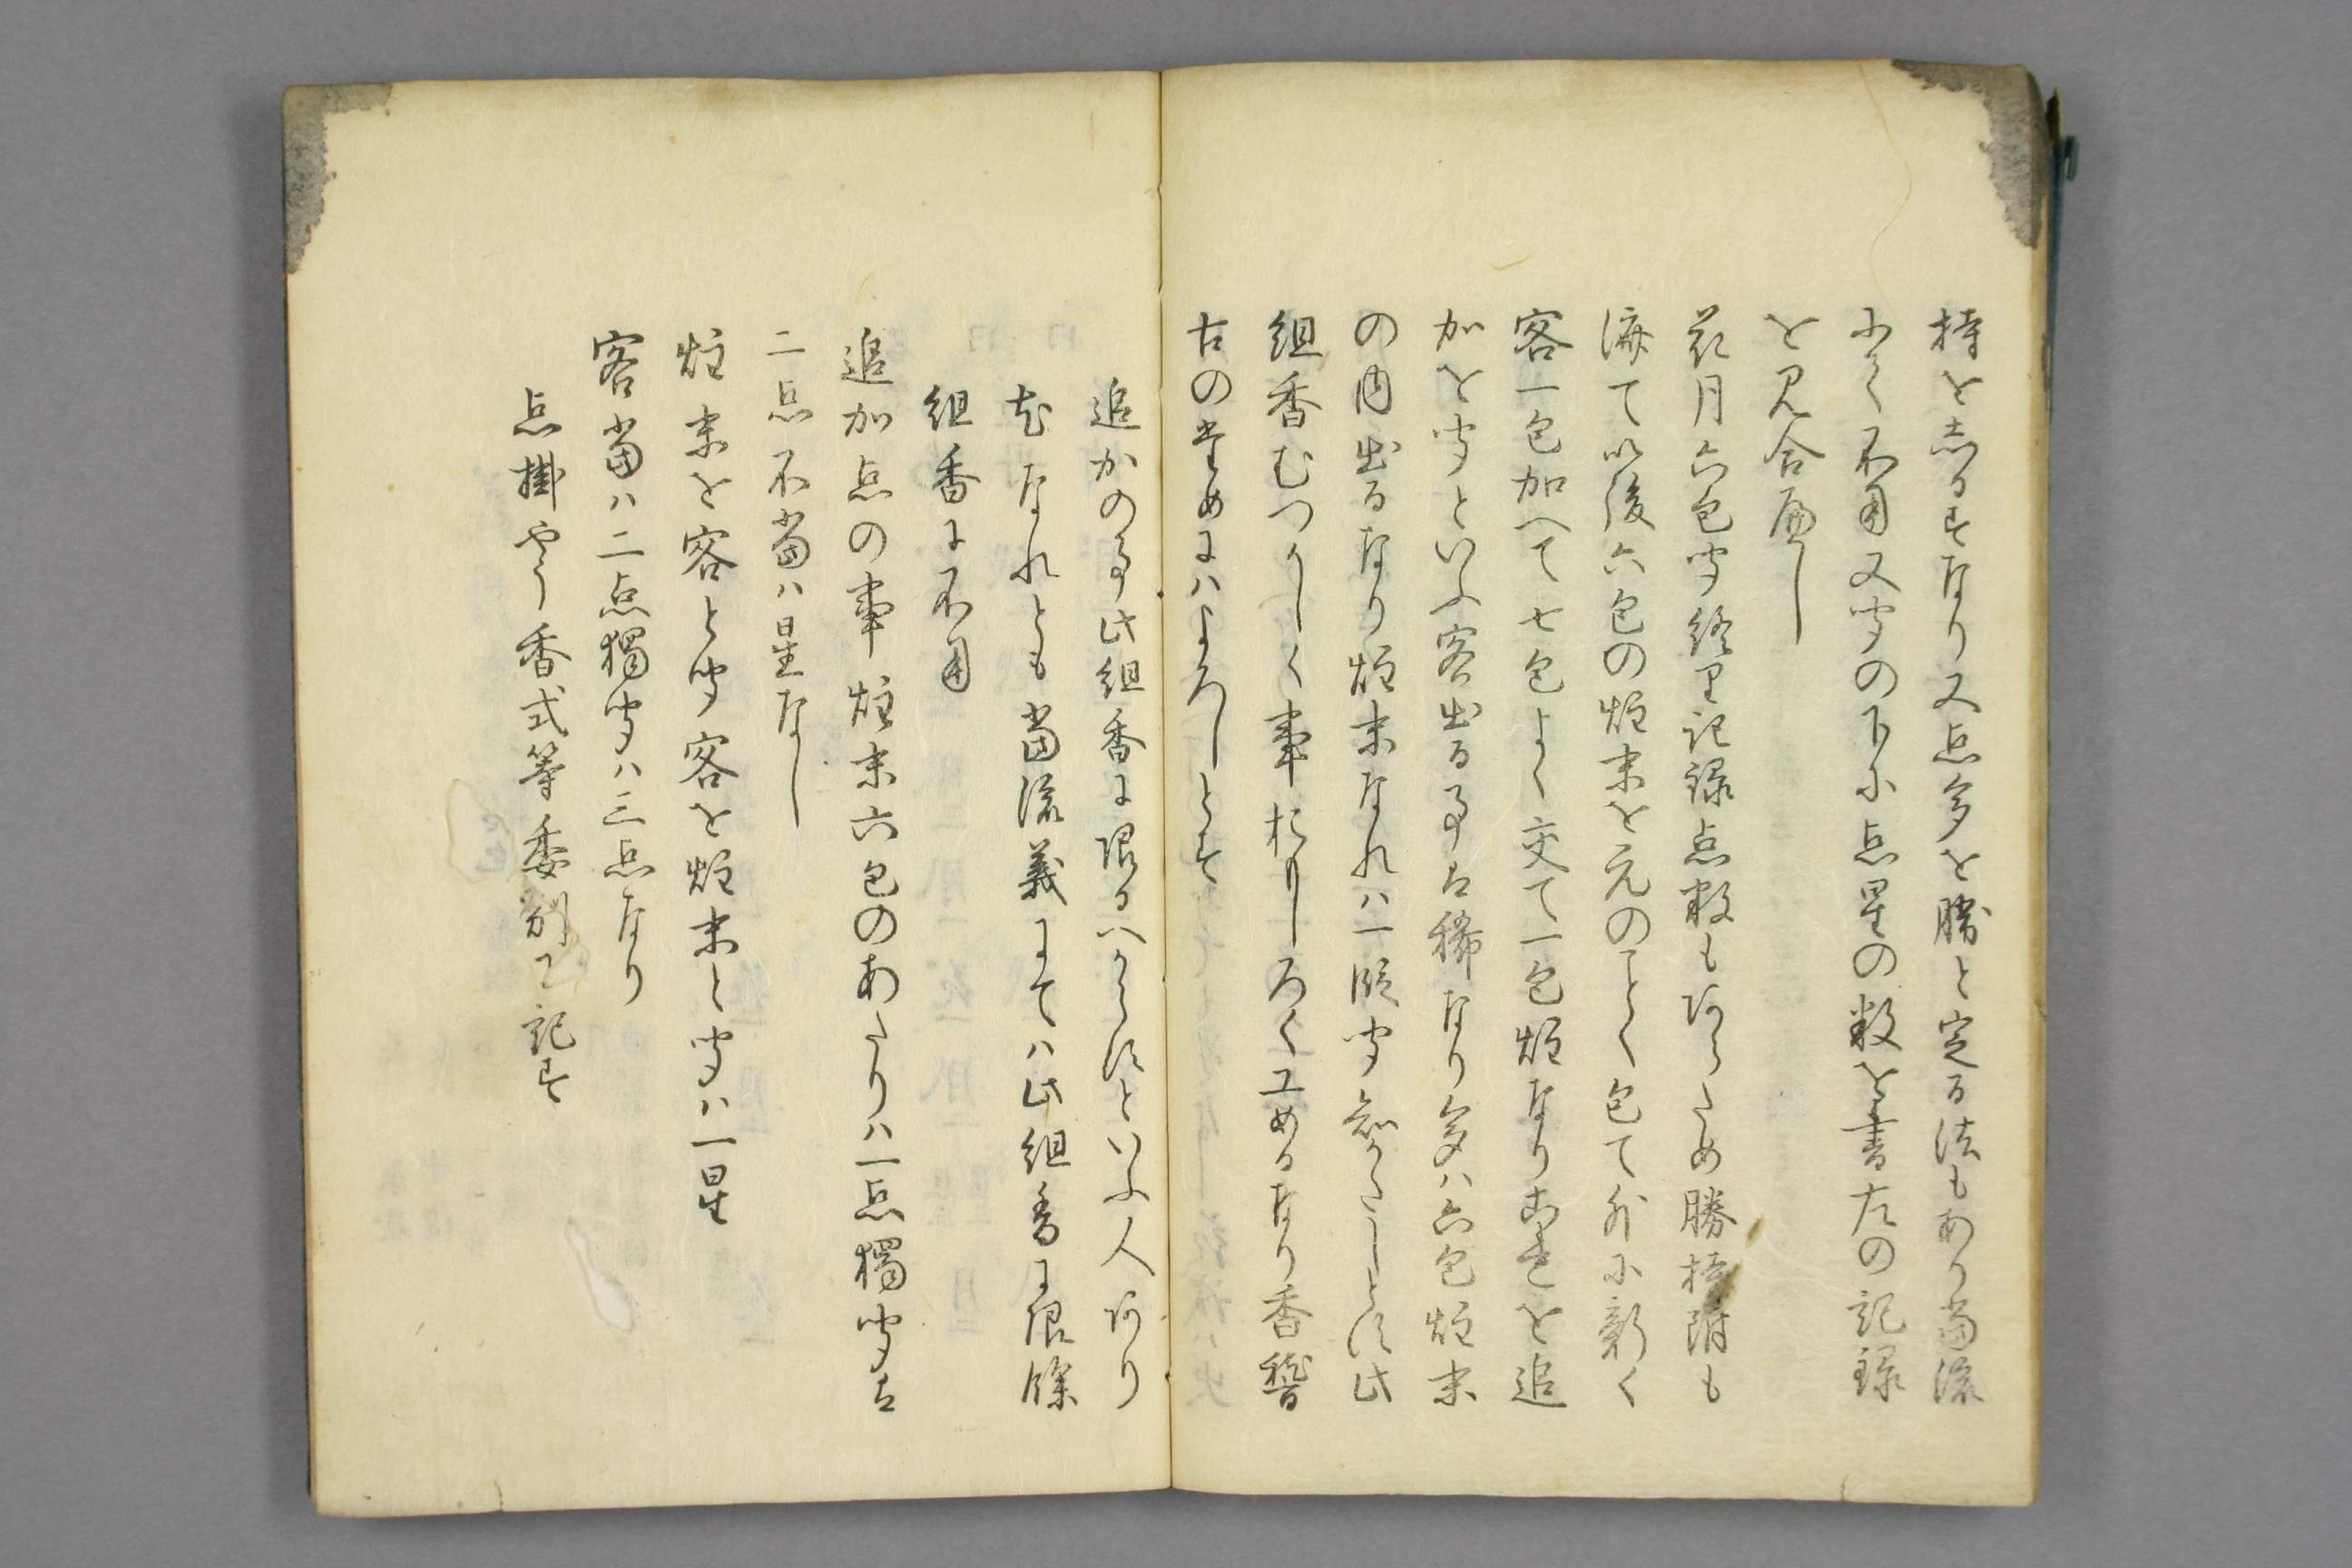 持を志るすなり又点多を勝と定る法もあり当流
にく不用又聞の下に点星の数を書左の記録
を見合へし
花月六包聞終里記録点数もあらため勝持附も
済て以後六包の炷末を元のことく包て外に新く
客一包加へて七包よく交て一包炷なりこれを追
加を聞といふ客出る事は稀なり多ハ六包炷末
の内出るなり炷末なれハ一段聞わかちかたしとす此
組香むつかしく事おもしろく工めるなり香稽
古のためにハよろしとす
追かの事此組香に限るへからすといふ人あり
尤なれとも当流義にてハ此組香に限餘
組香に不用
追加点の事炷末六包のあたりハ一点獨聞は
二点不当ハ星なし
炷末を客と聞客を炷末と聞ハ一星
客当ハ二点獨聞ハ三点なり
点掛やう香式等委別ニ記す